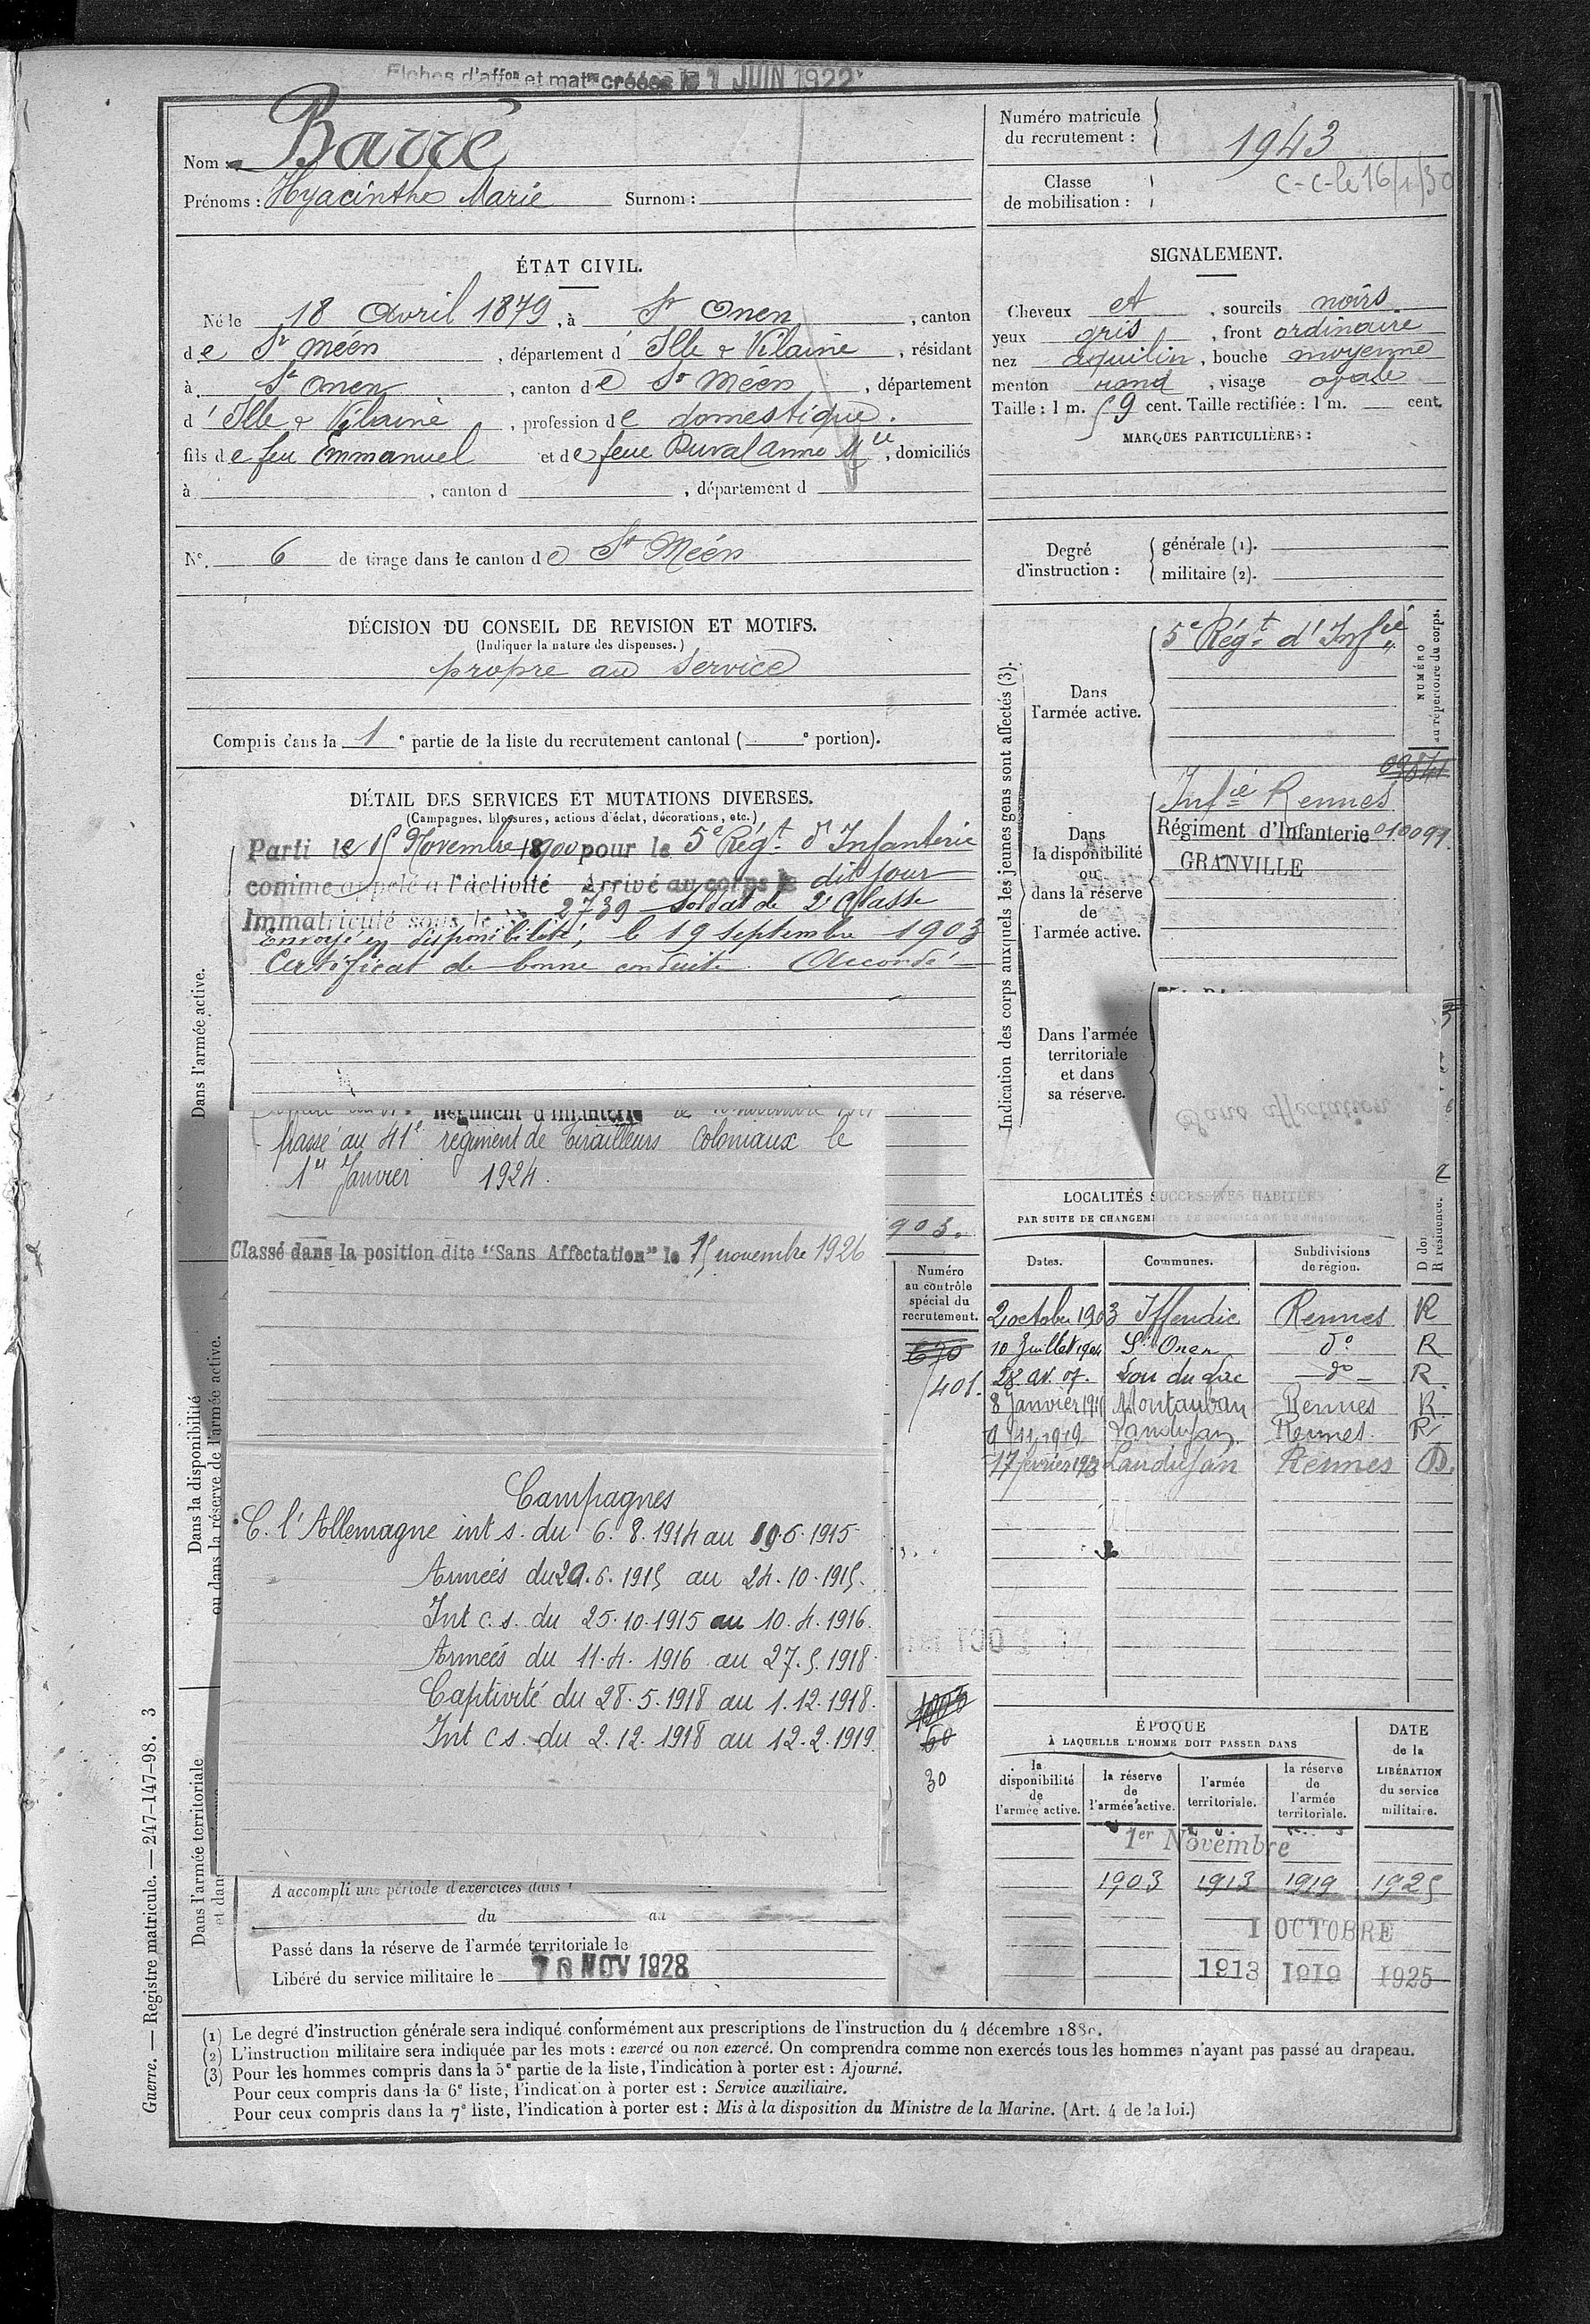 Fiches d'affon et matre créées le 1 JUIN 1922
Nom : Barré
Prénoms : Hyacinthe Marie Surnom :
Numéro matricule
du recrutement :
1943
Classe
de mobilisation :
C-C-le 16/1/30
ÉTAT CIVIL.
Né le 18 Avril 1879, à St Onen, canton
de St Méen, département d'Ille & Vilaine, résidant
à St Onen, canton de St Méen, département
d'Ille & Vilaine, profession de domestique.
fils de feu Emmanuel et de feue Duval Anne Mie, domiciliés
à , canton d , département d
N° 6 de tirage dans le canton de St Méen
SIGNALEMENT.
Cheveux et, sourcils noirs
yeux gris, front ordinaire
nez aquilin, bouche moyenne
menton rond, visage ovale
Taille : 1 m. 59 cent. Taille rectifiée : 1 m. cent.
MARQUES PARTICULIÈRES :
Degré
d'instruction :
générale (1).
militaire (2).
DÉCISION DU CONSEIL DE REVISION ET MOTIFS.
(Indiquer la nature des dispenses.)
propre au service
Compris dans la 1e partie de la liste du recrutement cantonal ( e portion).
DÉTAIL DES SERVICES ET MUTATIONS DIVERSES.
(Campagnes, blessures, actions d'éclat, décorations, etc.)
Dans l'armée active.
Parti le 15 Novembre 1900 pour le 5e Régt d'Infanterie
comme appelé à l'activité Arrivé au corps le dit jour
Immatriculé sous le No 2739 soldat de 2e Classe
Envoyé en disponibilité, le 19 septembre 1903
Certificat de bonne conduite Accordé
Régiment d'Infanterie
passé au 41e régiment de Tirailleurs Coloniaux le
1er Janvier 1924.
903.
Classé dans la position dite "Sans Affectation" le 15 novembre 1926
Dans la disponibilité
ou dans la réserve de l'armée active.
Campagnes
C. l'Allemagne int s. du 6.8.1914 au 19.6.1915
Armées du 20.6.1915 au 24.10.1915.
Int c.s. du 25.10.1915 au 10.4.1916.
Armées du 11.4.1916 au 27.5.1918
Captivité du 28.5.1918 au 1.12.1918.
Int c s. du 2.12.1918 au 12.2.1919.
Numéro
au contrôle
spécial du
recrutement.
670
401.
1003
60
30
Dans l'armée territoriale
et dans
A accompli une période d'exercices dans l
du au
Passé dans la réserve de l'armée territoriale le
Libéré du service militaire le 10 NOV 1928
Indication des corps auxquels les jeunes gens sont affectés (3).
Dans
l'armée active.
5e Régt d'Infie
NUMÉRO
au répertoire du corps.
Dans
la disponibilité
ou
dans la réserve
de
l'armée active.
Infie Rennes
Régiment d'Infanterie 010099.
GRANVILLE
Dans l'armée
territoriale
et dans
sa réserve.
Sans affectation
LOCALITÉS SUCCESSIVES HABITÉES
PAR SUITE DE CHANGEMENTS DE DOMICILE OU DE RÉSIDENCE.
Dates.
Communes.
Subdivisions
de région.
D dom
R résidence.
2 octobre 1903 Iffendic Rennes R
10 Juillet 1904 St Onen do R
28 av. 07. Lou du Lac do R
8 Janvier 1911 Montauban Rennes R
1919 Landujan Rennes. R
17 février 1923 Landujan Rennes D.
ÉPOQUE
À LAQUELLE L'HOMME DOIT PASSER DANS
la
disponibilité
de
l'armée active.
la réserve
de
l'armée active.
l'armée
territoriale.
la réserve
de
l'armée
territoriale.
DATE
de la
LIBÉRATION
du service
militaire.
1er Novembre
1903 1913 1919 1925
1 OCTOBRE
1913 1919 1925
(1) Le degré d'instruction générale sera indiqué conformément aux prescriptions de l'instruction du 4 décembre 1889.
(2) L'instruction militaire sera indiquée par les mots : exercé ou non exercé. On comprendra comme non exercés tous les hommes n'ayant pas passé au drapeau.
(3) Pour les hommes compris dans la 5e partie de la liste, l'indication à porter est : Ajourné.
Pour ceux compris dans la 6e liste, l'indication à porter est : Service auxiliaire.
Pour ceux compris dans la 7e liste, l'indication à porter est : Mis à la disposition du Ministre de la Marine. (Art. 4 de la loi.)
Guerre. — Registre matricule. — 247-147-98. 3